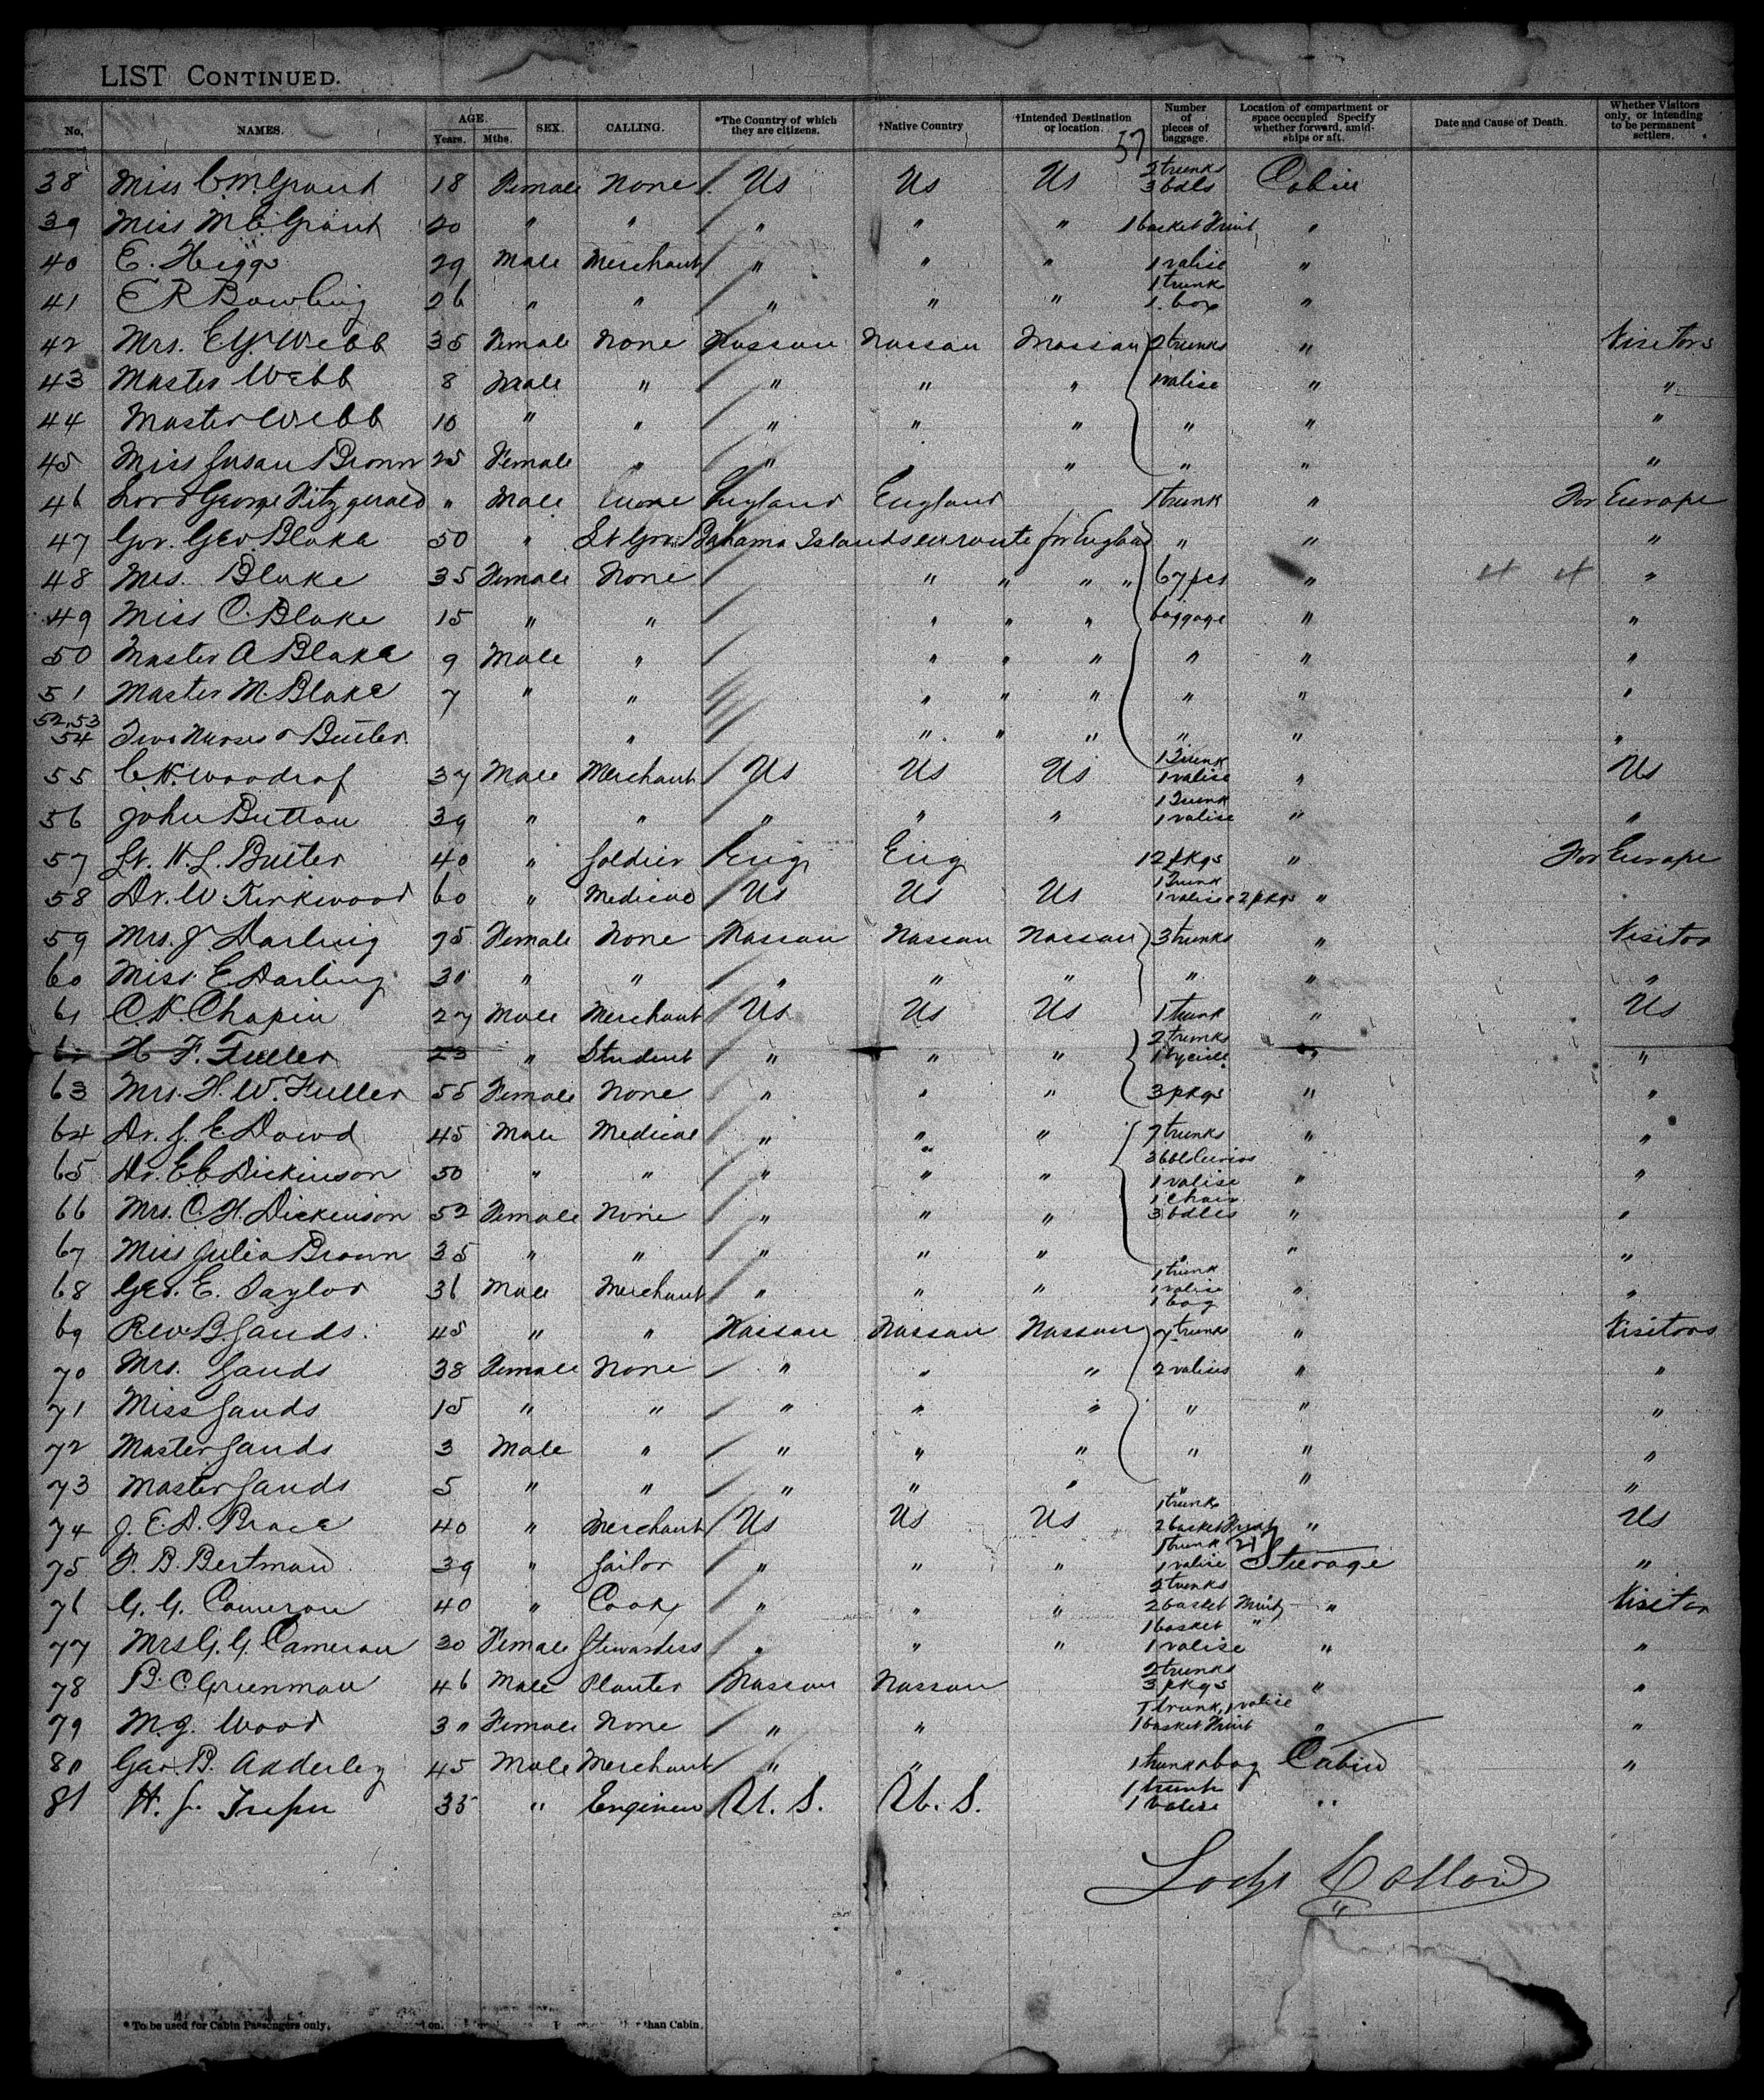 LIST CONTINUED.
No. NAMES. AGE. Years. Mths. SEX. CALLING. *The Country of which they are citizens. †Native Country †Intended Destination or location. Number of pieces of baggage. Location of compartment or space occupied Specify whether forward, amidships or aft. Date and Cause of Death. Whether Visitors only, or intending to be permanent settlers.
57
38 Miss C M. Grant 18 Female None Us Us Us 2 trunks 3 bdls Cabin
39 Miss M E Grant 20 " " " " " 1 basket Fruit "
40 E. Higgs 29 Male Merchant " " " 1 valise "
41 E R Bowling 26 " " " " " 1 trunk 1 box "
42 Mrs. E Y Webb 35 Female None Nassau Nassau Nassau 2 trunks " Visitors
43 Master Webb 8 Male " " " " 1 valise " "
44 Master Webb 10 " " " " " " " "
45 Miss Susan Brown 25 Female " " " " " " "
46 Lord George Fitzgerald " Male None England England 1 trunk " For Europe
47 Gov. Geo Blake 50 " Lt Gov. Bahama Islands en route for England " " "
48 Mrs. Blake 35 Female None " " " " 67 pcs " 4 4 "
49 Miss O. Blake 15 " " " " " baggage " "
50 Master A Blake 9 Male " " " " " " "
51 Master M. Blake 7 " " " " " " " "
52, 53 54 Two Nurses & Butler " " " " " " "
55 C H Woodrof 37 Male Merchant Us Us Us 1 Trunk 1 valise " Us
56 John Button 39 " " " " " 1 Trunk 1 valise " "
57 Lt. H. L. Butler 40 " Soldier Eng Eng 12 pkgs " For Europe
58 Dr. W Kirkwood 60 " Medical Us Us Us 1 Trunk 1 valise 2 pkgs "
59 Mrs. J Darling 75 Female None Nassau Nassau Nassau 3 trunks " Visitor
60 Miss E Darling 30 " " " " " " " "
61 C. H. Chapin 27 Male Merchant Us Us Us 1 trunk " Us
62 H F. Fuller 23 " Student " " " 2 trunks 1 bycicle " "
63 Mrs. H. W. Fuller 55 Female None " " " 3 pkgs " "
64 Dr. J. E Dowd 45 Male Medical " " " 7 trunks " "
65 Dr. E C Dickinson 50 " " " " " 3 bbl Curios 1 valise " "
66 Mrs. C. H. Dickenson 52 Female None " " " 1 chair 3 bdles " "
67 Miss Julia Brown 35 " " " " " " " "
68 Geo. E. Taylor 36 Male Merchant " " " 1 trunk 1 valise 1 bag " "
69 Rev B. Sands. 45 " " Nassau Nassau Nassau 7 trunk " Visitors
70 Mrs. Sands 38 Female None " " " 2 valises " "
71 Miss Sands 15 " " " " " " " "
72 Master Sands 3 Male " " " " " " "
73 Master Sands 5 " " " " " " " "
74 J. E. D. Brace 40 " Merchant Us Us Us 1 trunk 2 basket Fruit " Us
75 F. B. Bertman 39 " Sailor " " " 1 trunk 1 valise Steerage "
76 G. G. Cameron 40 " Cook " " " 2 trunks 2 basket Fruit " Visitor
77 Mrs G. G. Cameron 30 Female Stewardess " " " 1 basket " 1 valise " "
78 B. C Greenman 46 Male Planter Nassau Nassau 2 trunks 3 pkgs " "
79 M. J. Wood 30 Female None " " 1 trunk, 1 valise 1 basket Fruit " "
80 Geo. B. Adderley 45 Male Merchant " " 1 trunk & bag Cabin "
81 H. J. 35 " Engineer U. S. U. S. 1 trunk 1 valise "
* To be used for Cabin Passengers only. than Cabin.